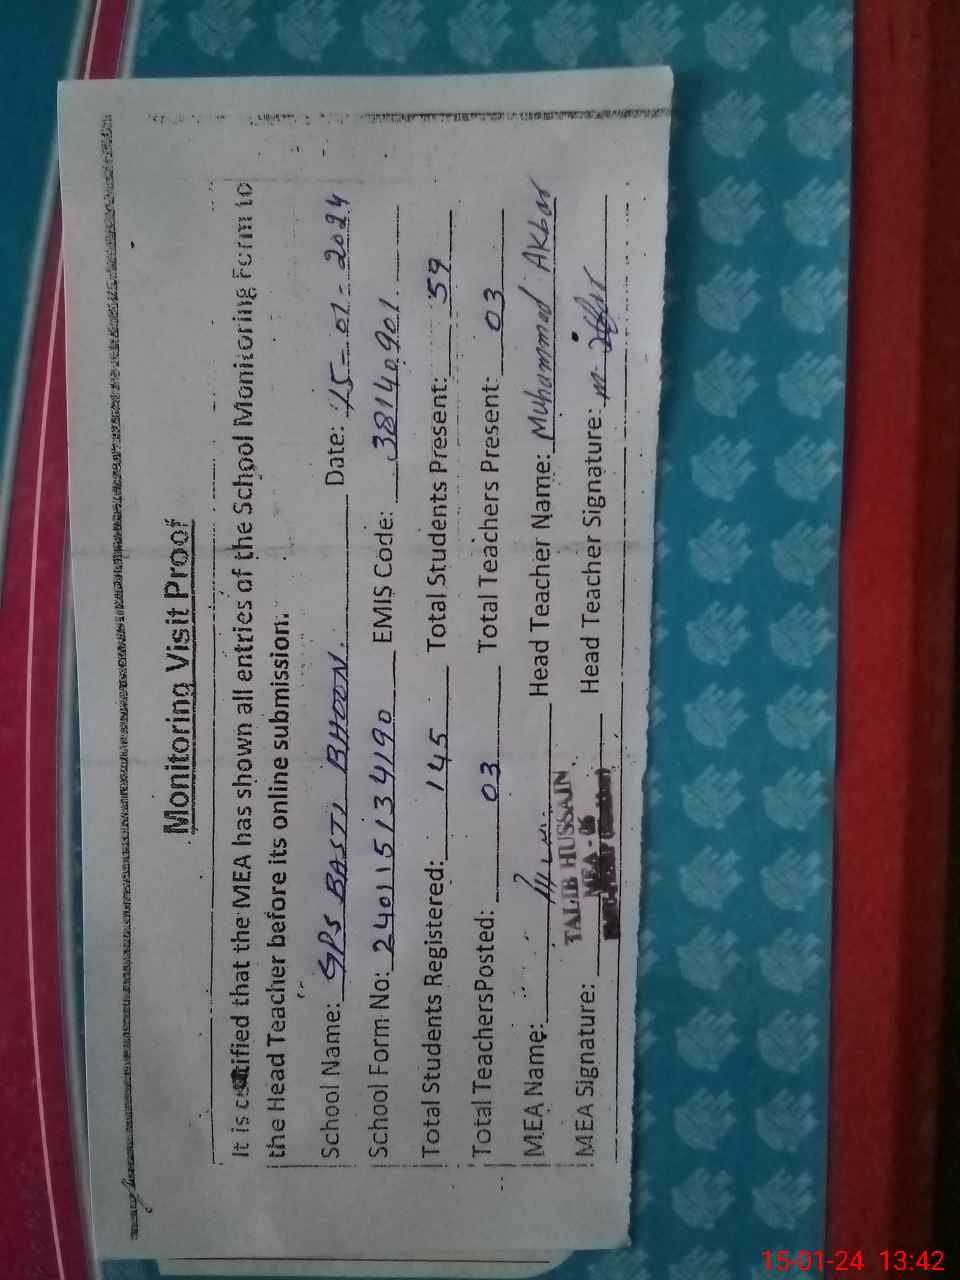 Monitoring Visit Proof
It is certified that the MEA has shown all entries of the School Monitoring Form to
the Head Teacher before its online submission.
School Name: GPS BASTI BHOON. Date: 15-01-2024
School Form No: 240115134190 EMIS Code: 38140901.
Total Students Registered: 145 Total Students Present: 59
Total TeachersPosted: 03 Total Teachers Present: 03
MEA Name: Head Teacher Name: Muhammad Akbar
TALIB HUSSAIN
MEA Signature: MEA - 06 Head Teacher Signature:
15-01-24 13:42